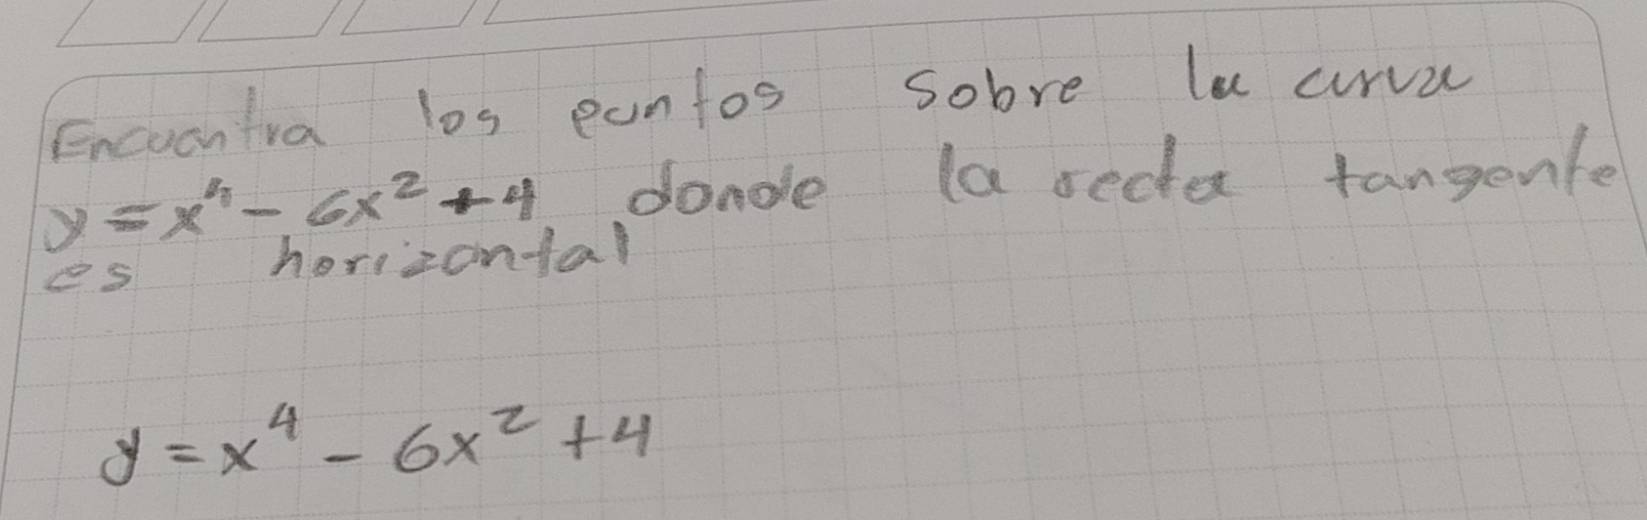 Encuentra los puntos sobre la curva
y = x⁴ - 6x² + 4 donde la recta tangente
es horizontal
y = x⁴ - 6x² + 4